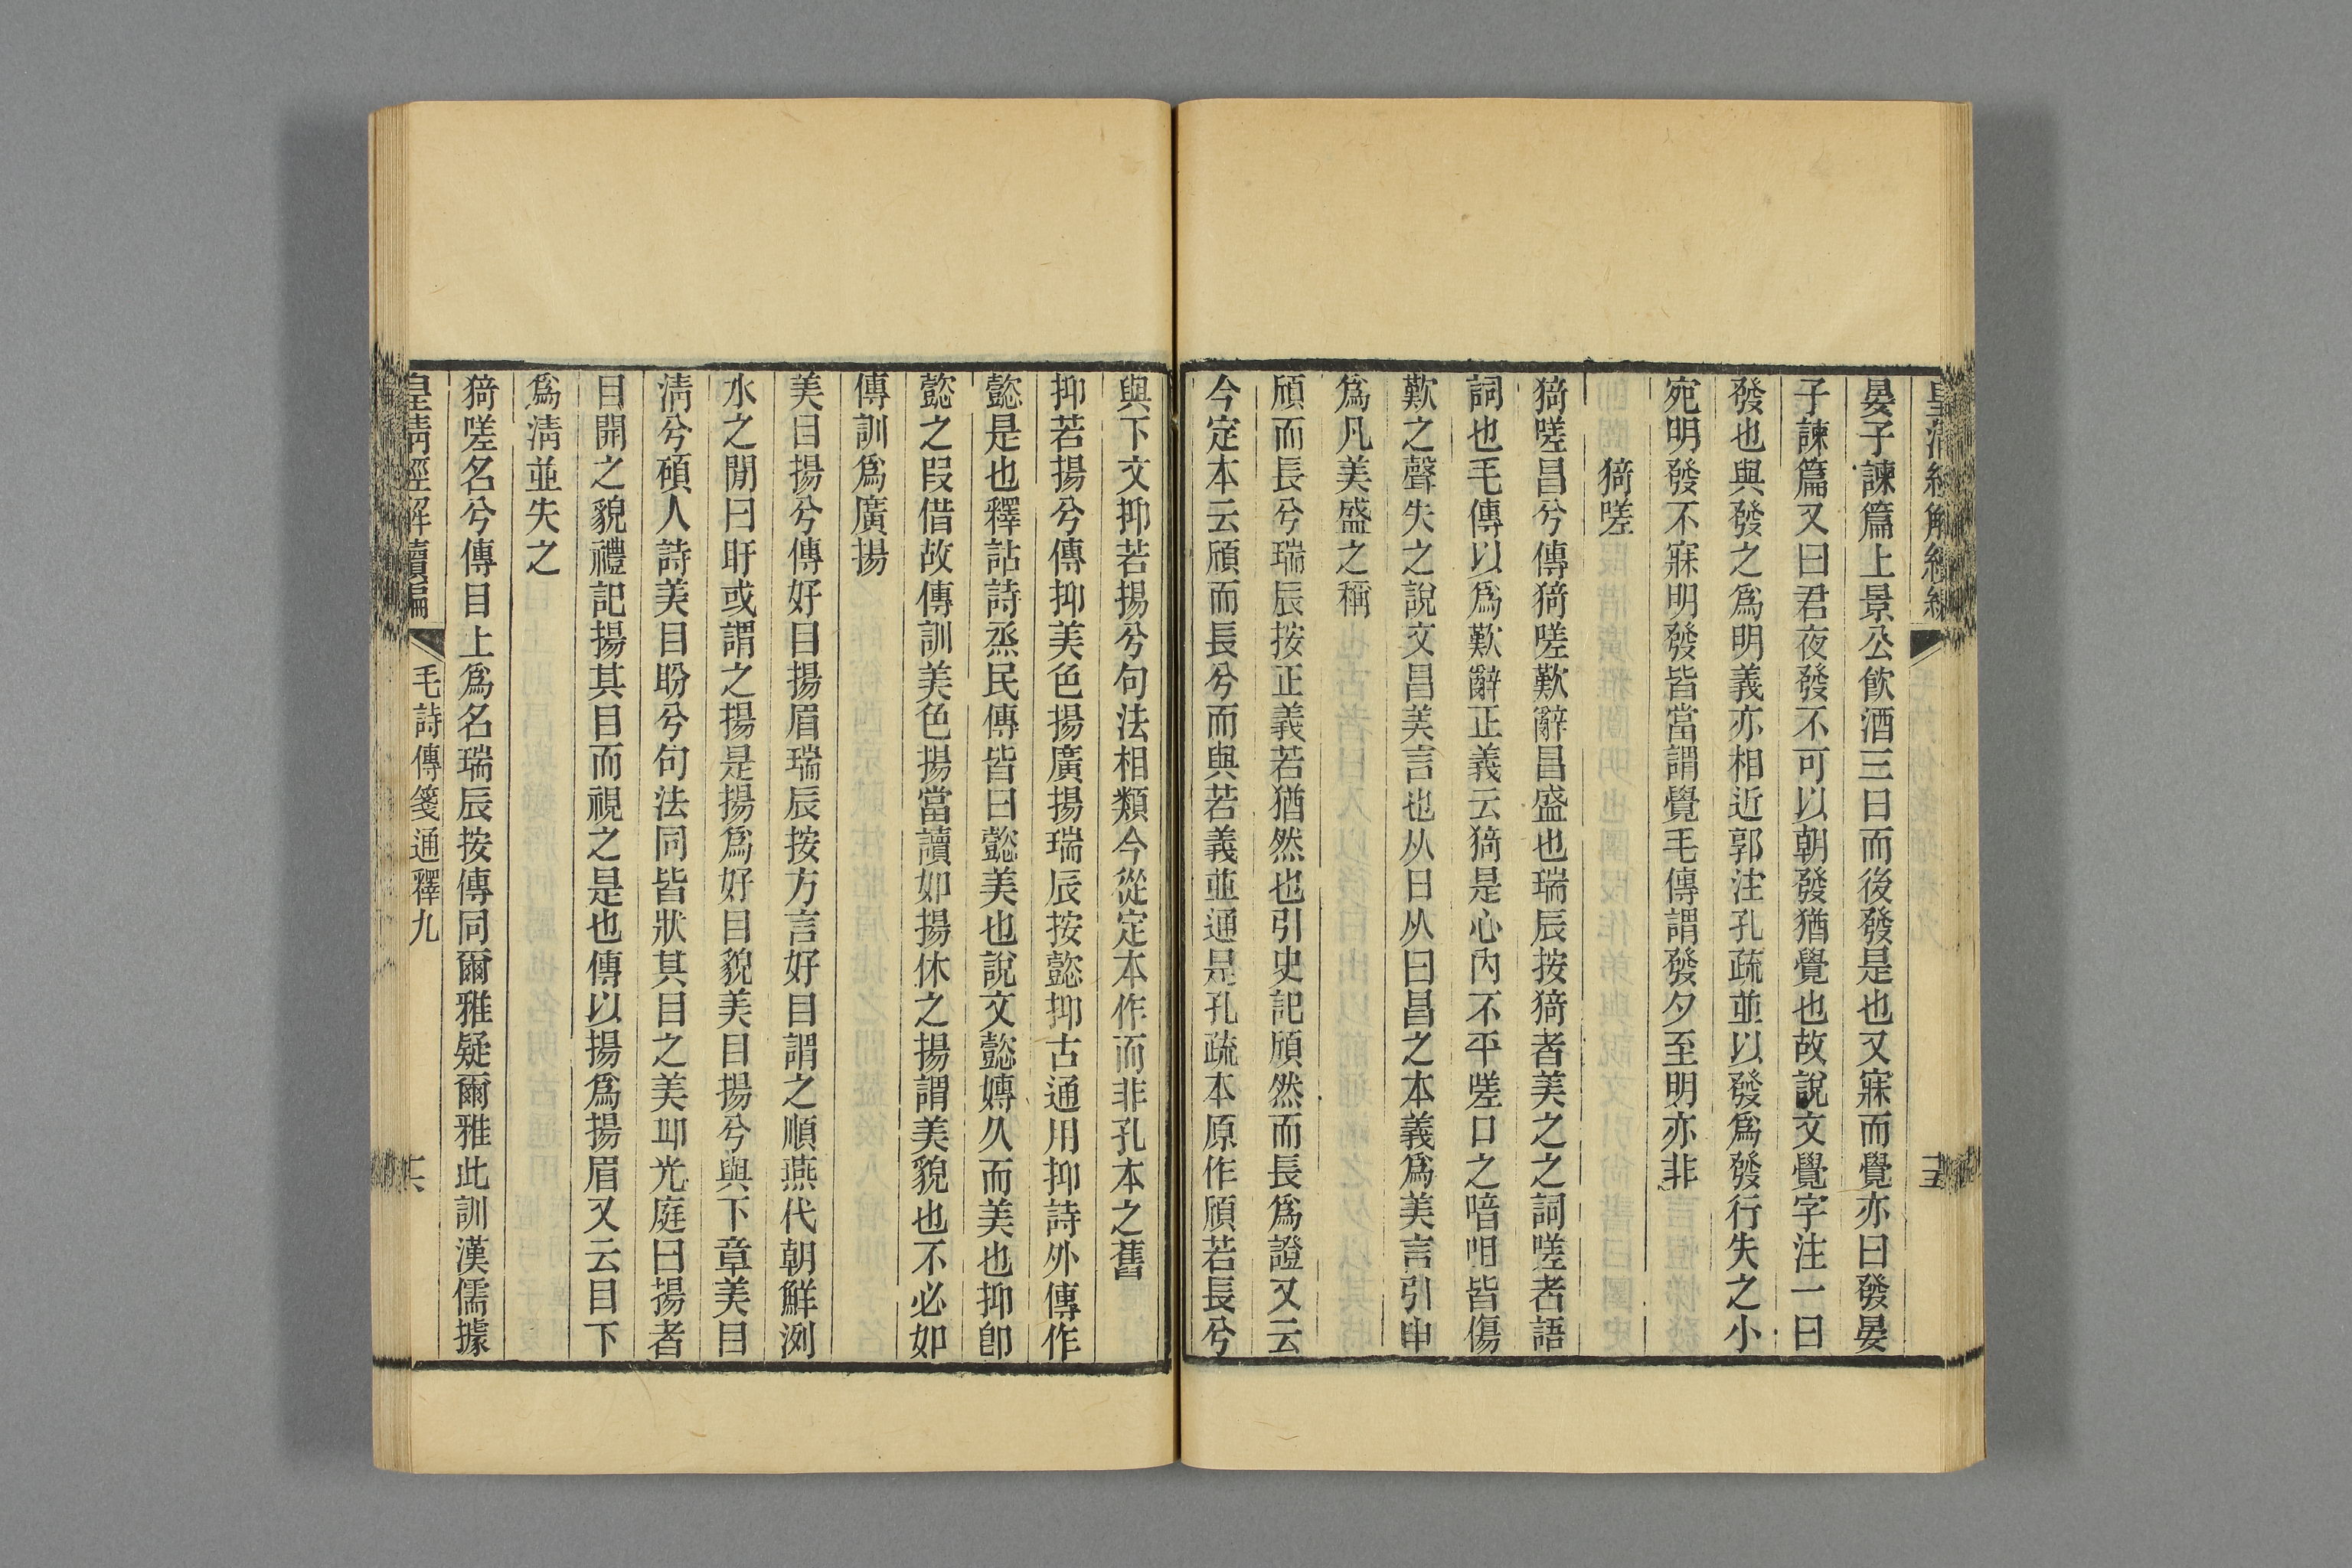 皇清經解續編
晏子諫篇上景公飮酒三日而後發是也又寐而覺亦曰發晏
子諫篇又曰君夜發不可以朝發猶覺也故說文覺字注一曰
發也與發之爲明義亦相近郭注孔疏並以發爲發行失之小
宛明發不寐明發皆當謂覺毛傳謂發夕至明亦非
猗嗟
猗嗟昌兮傳猗嗟歎辭昌盛也瑞辰按猗者美之之詞嗟者語
詞也毛傳以爲歎辭正義云猗是心內不平嗟口之喑咀皆傷
歎之聲失之說文昌美言也从日从曰昌之本義爲美言引申
爲凡美盛之稱
頎而長兮瑞辰按正義若猶然也引史記頎然而長爲證又云
今定本云頎而長兮而與若義並通是孔疏本原作頎若長兮
與下文抑若揚兮句法相類今從定本作而非孔本之舊
抑若揚兮傳抑美色揚廣揚瑞辰按懿抑古通用抑詩外傳作
懿是也釋詁詩烝民傳皆曰懿美也說文懿嫥久而美也抑卽
懿之叚借故傳訓美色揚當讀如揚休之揚謂美貌也不必如
傳訓爲廣揚
美目揚兮傳好目揚眉瑞辰按方言好目謂之順燕代朝鮮洌
水之閒曰盱或謂之揚是揚爲好目貌美目揚兮與下章美目
淸兮碩人詩美目盼兮句法同皆狀其目之美𠮩光庭曰揚者
目開之貌禮記揚其目而視之是也傳以揚爲揚眉又云目下
爲淸並失之
猗嗟名兮傳目上爲名瑞辰按傳同爾雅疑爾雅此訓漢儒據
皇淸經解續編
毛詩傳箋通釋九